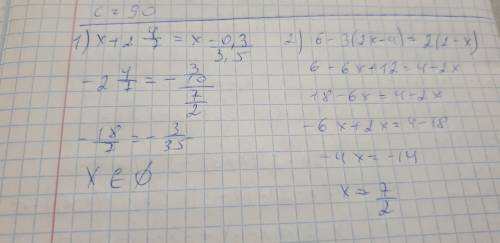 c = 90
1) x + 2 4/7 = x - 0,3/3,5
- 2 4/7 = - 3/10/7/2
- 18/7 = - 3/35
X ∈ ∅
2) 6 - 3(2x - 4) = 2(2 - x)
6 - 6x + 12 = 4 - 2x
18 - 6x = 4 - 2x
- 6x + 2x = 4 - 18
- 4x = - 14
x = 7/2